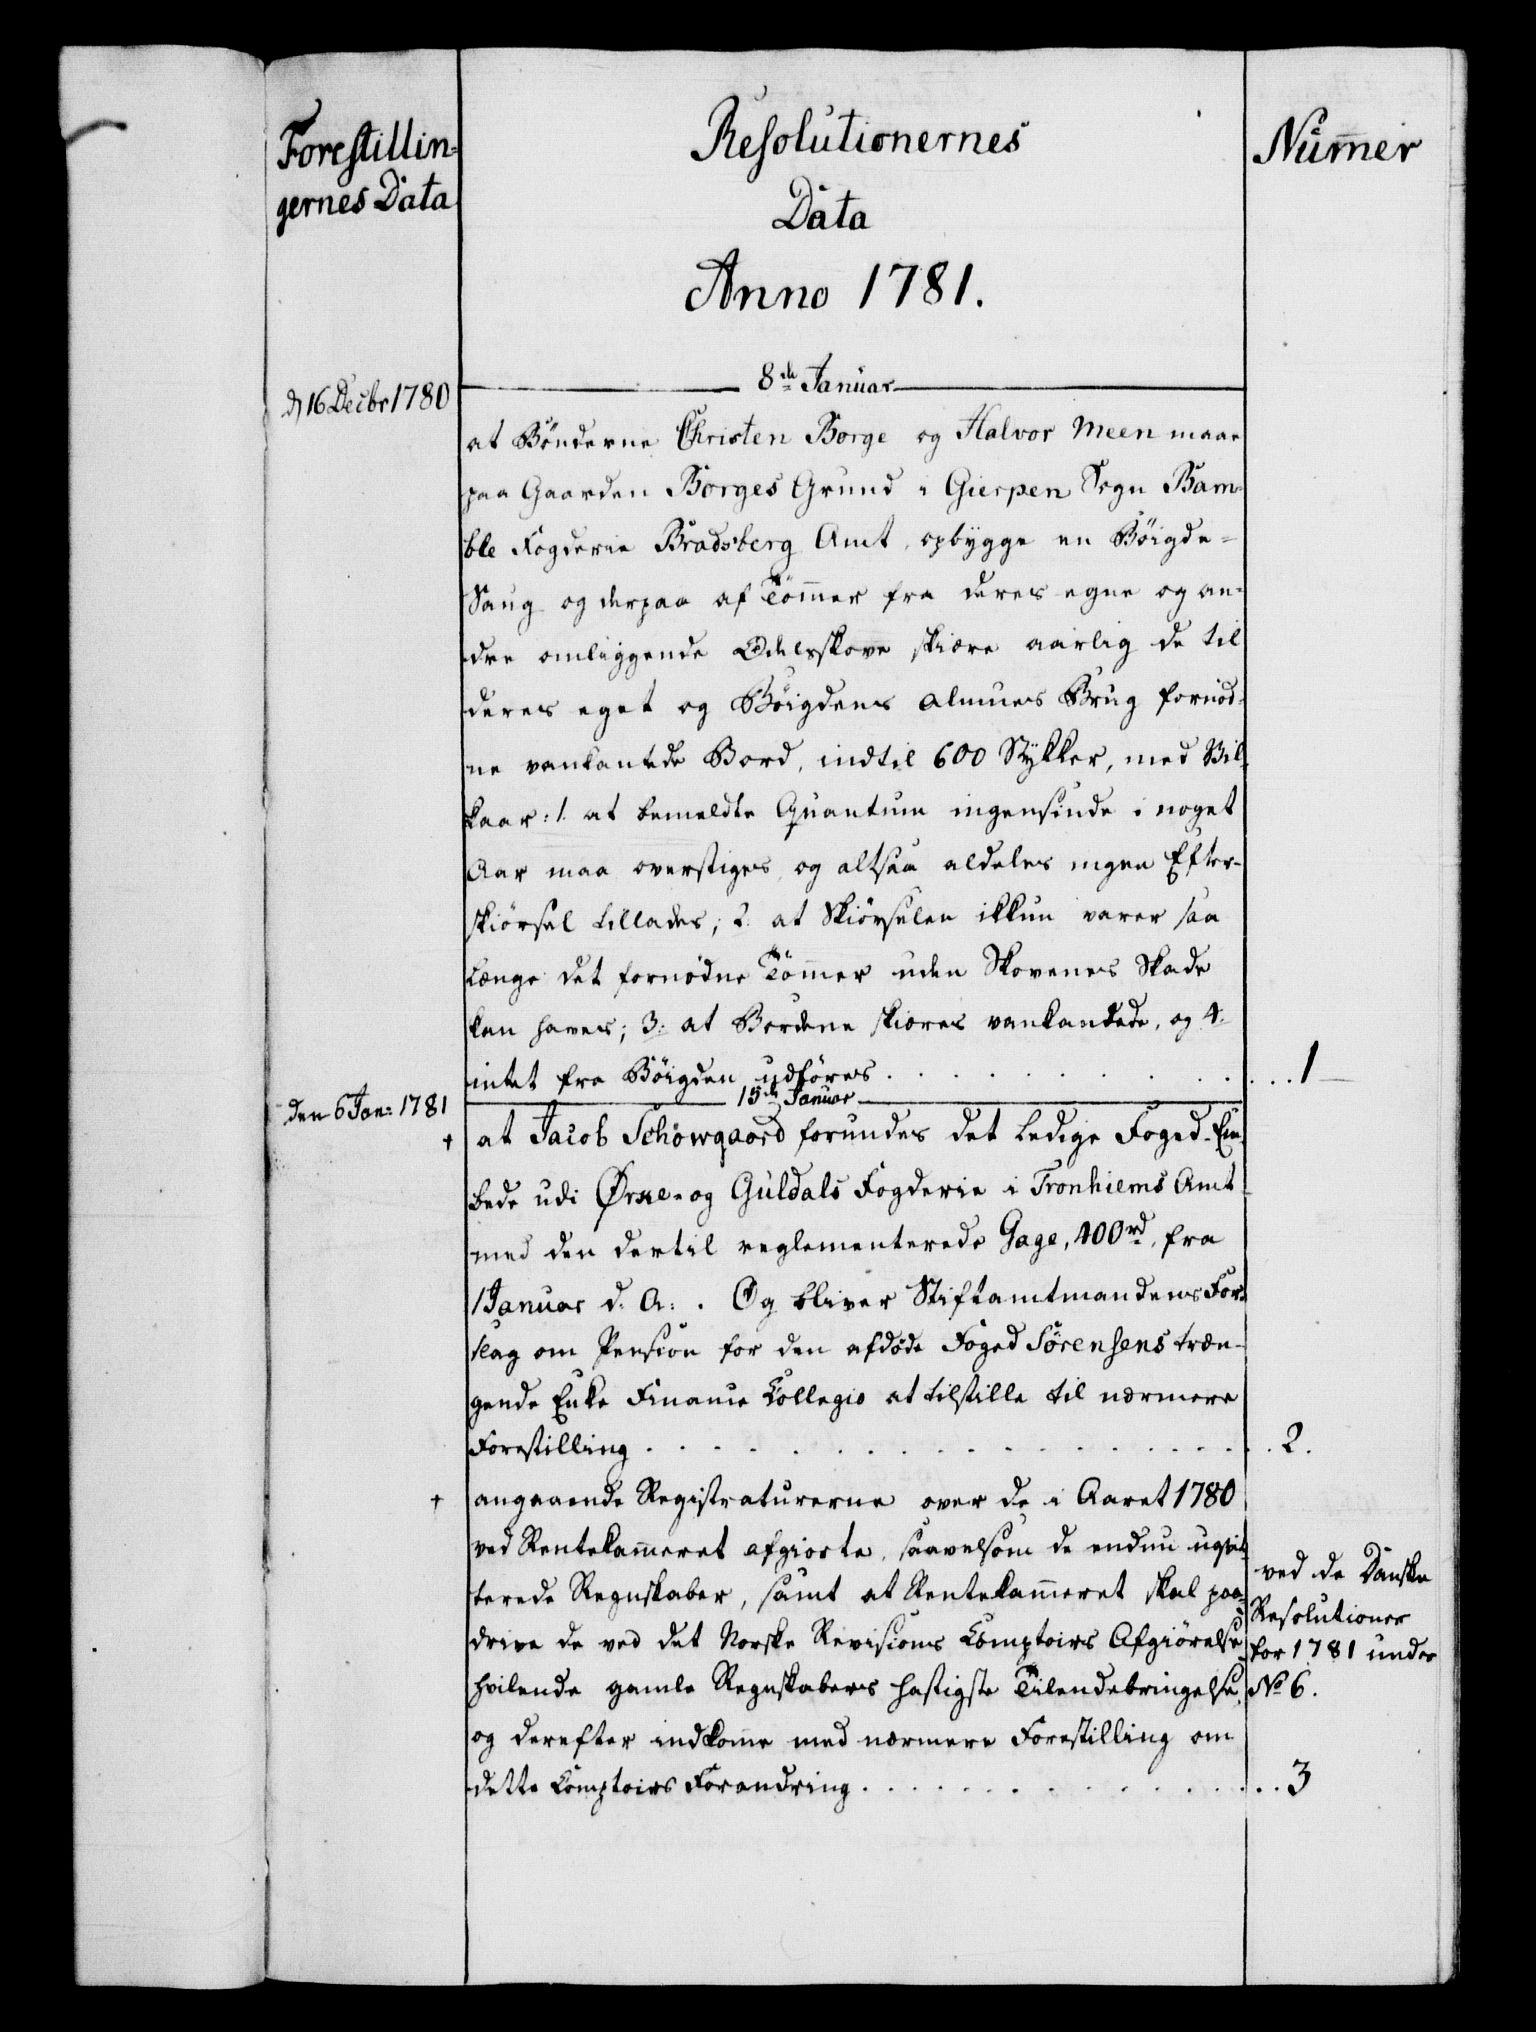 Forestillin-
gernes Data
Resolutionernes
Data
Anno 1781.
Num̅er
8de Januar
d 16 Decbr 1780
at Bönderne Christen Borge og Halvor Meen maae
paa Gaarden Borges Grund i Gierpen Sogn Bam-
ble Fogderie Bradsberg Amt, opbygge en Böigde-
Saug og derpaa af Töm̅er fra deres egne og an-
dre omliggende Odelsskove skiære aarlig de til
deres eget og Böigdens Almues Brug fornöd-
ne vankantede Bord, indtil 600 Stykker, med Vil-
kaar: 1. at bemeldte Quantum ingensinde i noget
Aar maa overstiges, og altsaa aldeles ingen Efter-
skiörsel tillades; 2. at Skiörselen ikkun varer saa
længe det fornödne Töm̅er uden Skovenes Skade
kan haves; 3. at Bordene skiæres vankandede, og 4.
intet fra Böigden udföres . . . . . . . . 1
15de Januar
den 6 Jan: 1781
† at Jacob Schöwgaard forundes det ledige Foged-Em-
bede udi Örke- og Guldals Fogderie i Tronhiems Amt
med den dertil reglementerede Gage, 400rd, fra
1 Januar d. A. . Og bliver Stiftamtmandens For-
slag om Pension for den afdöde Foged Sörensens træn-
gende Enke Finance Collegio at tilstille til nærmere
Forestilling . . . . . . . . . . . 2.
† angaaende Registraturerne over de i Aaret 1780
ved Rentekam̅eret afgiorte, saavelsom de endnu uqvit-
terede Regnskaber, samt at Rentekam̅eret skal paa-
drive de ved det Norske Revisions Comptoirs Afgiörelse
hvilende gamle Regnskabers hastigste Tilendebringelse,
og derefter indkom̅e med nærmere Forestilling om
dette Comptoirs Forandring . . . . . . . . 3
ved de Danske
Resolutioner
for 1781 under
No 6.